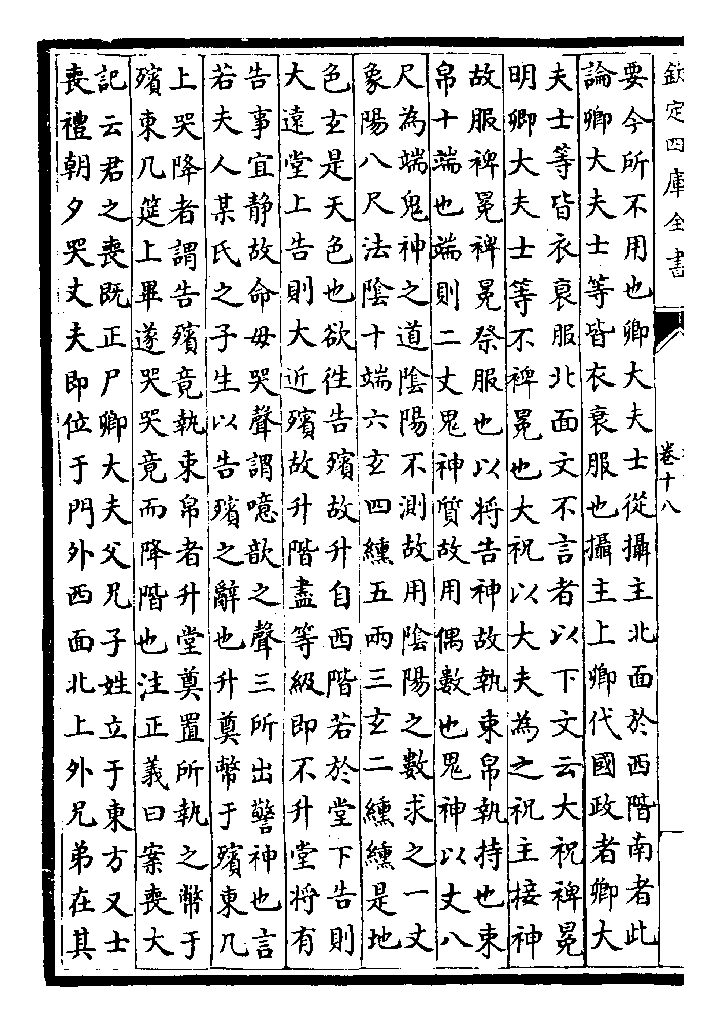 欽定四庫全書
卷十八
要今所不用也卿大夫士從攝主北面於西階南者此
論卿大夫士等皆衣衰服也攝主上卿代國政者卿大
夫士等皆衣衰服北面文不言者以下文云大祝裨冕
明卿大夫士等不裨冕也大祝以大夫為之祝主接神
故服裨冕裨冕祭服也以将告神故執束帛執持也束
帛十端也端則二丈鬼神質故用偶數也鬼神以丈八
尺為端鬼神之道陰陽不測故用陰陽之數求之一丈
象陽八尺法陰十端六玄四纁五兩三玄二纁纁是地
色玄是天色也欲徃告殯故升自西階若於堂下告則
大遠堂上告則大近殯故升階盡等級即不升堂将有
告事宜静故命毋哭聲謂噫歆之聲三所出警神也言
若夫人某氏之子生以告殯之辭也升奠幣于殯東几
上哭降者謂告殯竟執束帛者升堂奠置所執之幣于
殯東几筵上畢遂哭哭竟而降階也注正義曰案喪大
記云君之喪既正尸卿大夫父兄子姓立于東方又士
喪禮朝夕哭丈夫即位于門外西面北上外兄弟在其